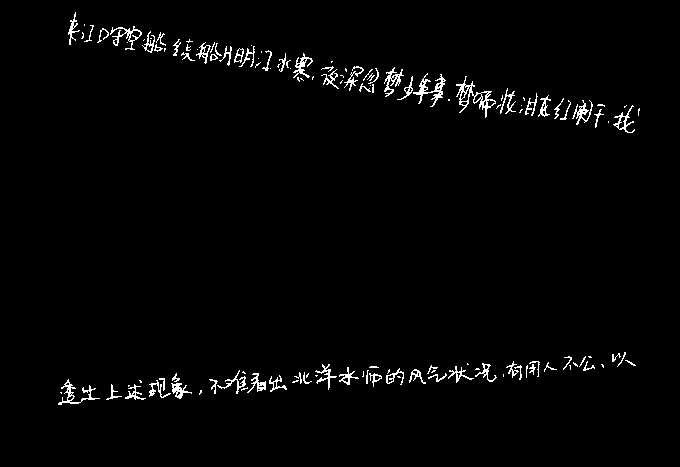 来江口守空船,绕船月明江水寒,夜深忽梦少年事,梦啼妆泪红阑干,我
透出上述现象,不难看出北洋水师的风气状况,有用人不公、以